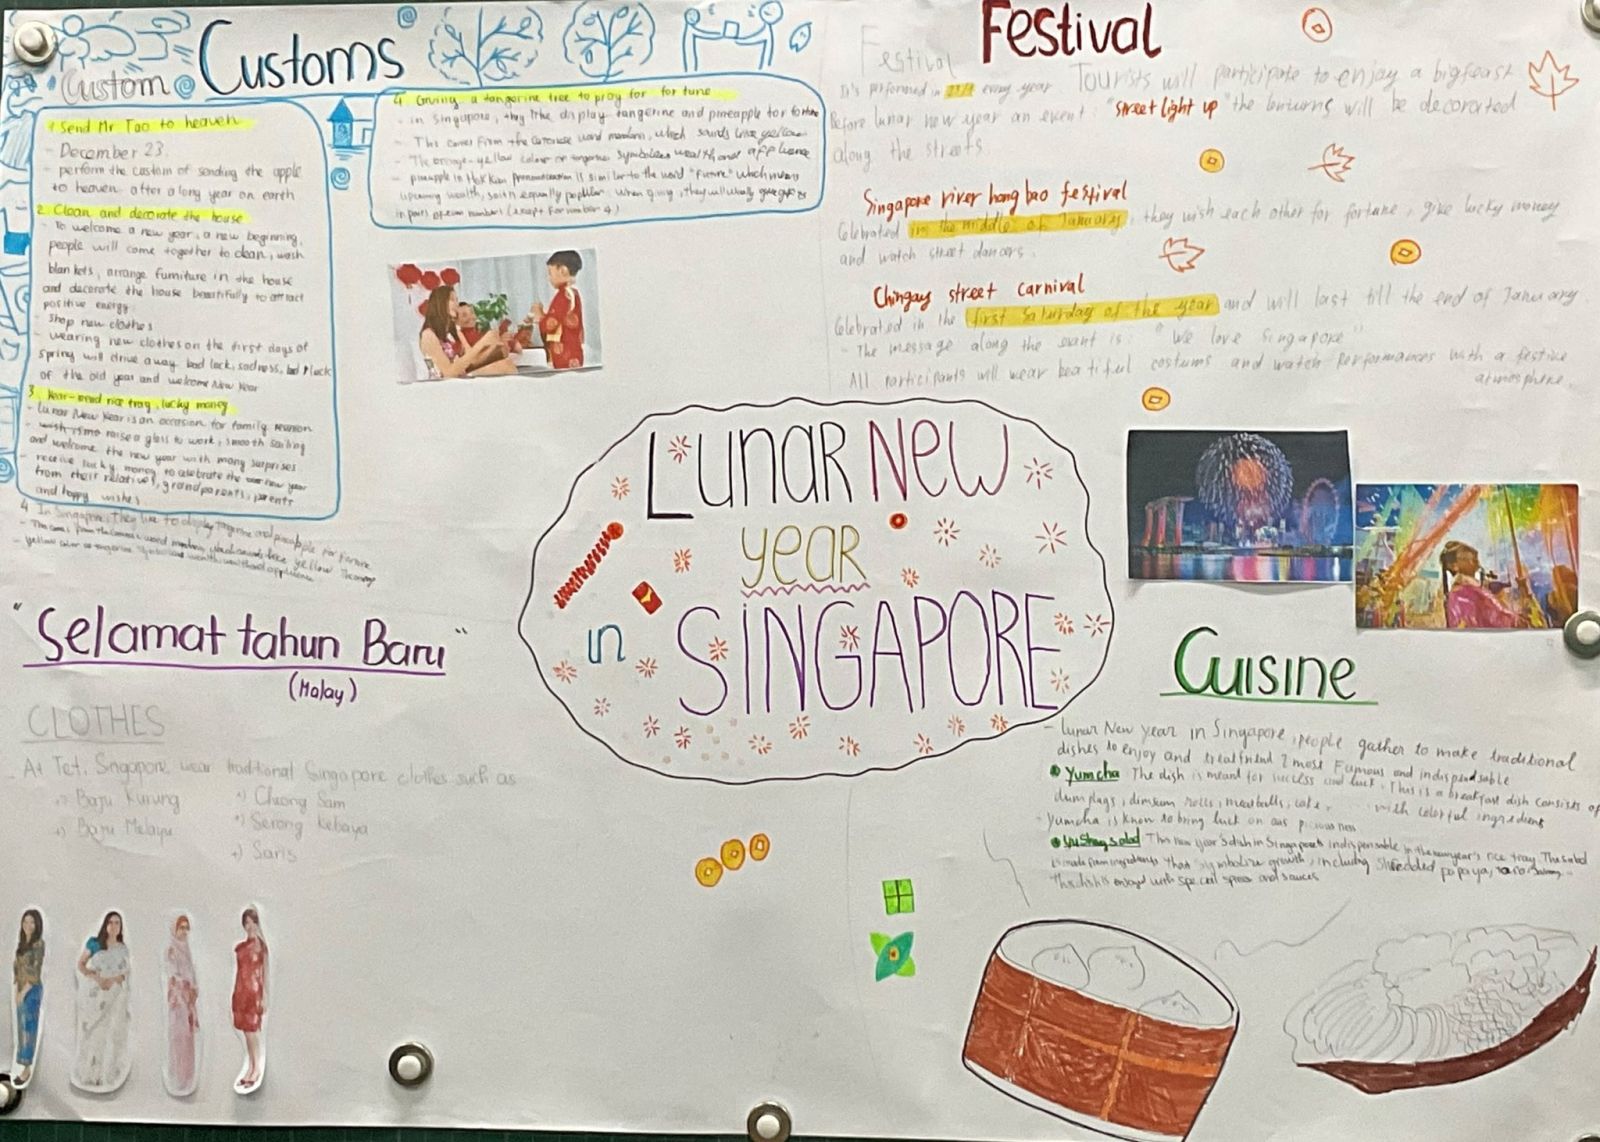 Customs
Custom
1 Send Mr Tao to heaven
- December 23
- perform the custom of sending the apple
to heaven after a long year on earth
2. Clean and decorate the house
- To welcome a new year, a new beginning,
people will come together to clean, wash
blankets, arrange furniture in the house
and decorate the house beautifully to attract
positive energy
- Shop new clothes
- wearing new clothes on the first days of
spring will drive away bad luck, sadness, bad luck
of the old year and welcome New Year
3. Year-end rice tray, lucky money
- Lunar New Year is an occasion for family reunion
raise a glass to work, smooth sailing
and welcome the new year with many surprises
- receive lucky money to celebrate the new year
from their relatives, grandparents, parents
and happy wishes
4 In Singapore, they like to display tangerine and pineapple for fortune
4. Giving a tangerine tree to pray for fortune
- in Singapore, they like display tangerine and pineapple for fortune
- This comes from the word mandarin, which sounds like yellow
- The orange-yellow colour of tangerine symbolizes wealth and
- pineapple in Hokkien pronunciation is similar to the word "Future" which means
upcoming wealth, so it's equally popular. When giving, they will usually give gifts
in pairs of even numbers (except for number 4)
Festival
Festival
It's performed in every year Tourists will participate to enjoy a big feast
Before lunar new year an event: "street light up" the will be decorated
along the streets.
Singapore river hong bao festival
Celebrated in the middle of January, they wish each other for fortune, give lucky money
and watch street dancers.
Chingay street carnival
Celebrated in the first Saturday of the year and will last till the end of January
- The message along the event is: "We love Singapore"
All participants will wear beautiful costums and watch performances with a festive
atmosphere.
LUNAR NEW
YEAR
in SINGAPORE
"Selamat tahun Baru"
(Malay)
CLOTHES
- At Tet, Singapore wear traditional Singapore clothes such as
+) Baju Kurung
+) Cheong Sam
+) Baju Melayu
+) Serong Kebaya
+) Saris
Cuisine
- Lunar New year in Singapore, people gather to make traditional
dishes to enjoy and treat friend 2 most famous and indispensable
Yumcha The dish is meant for success and luck. This is a breakfast dish consists of
dumplags, dimsum rolls, meatballs, cake, with colorful ingredients
- Yumcha is know to bring luck
Yu Sheng salad This new year's dish in Singapore is indispensable in the new year's rice tray. The salad
is made from ingredients that symbolize growth, including shredded papaya,
This dish is enjoyed with special spices and sauces